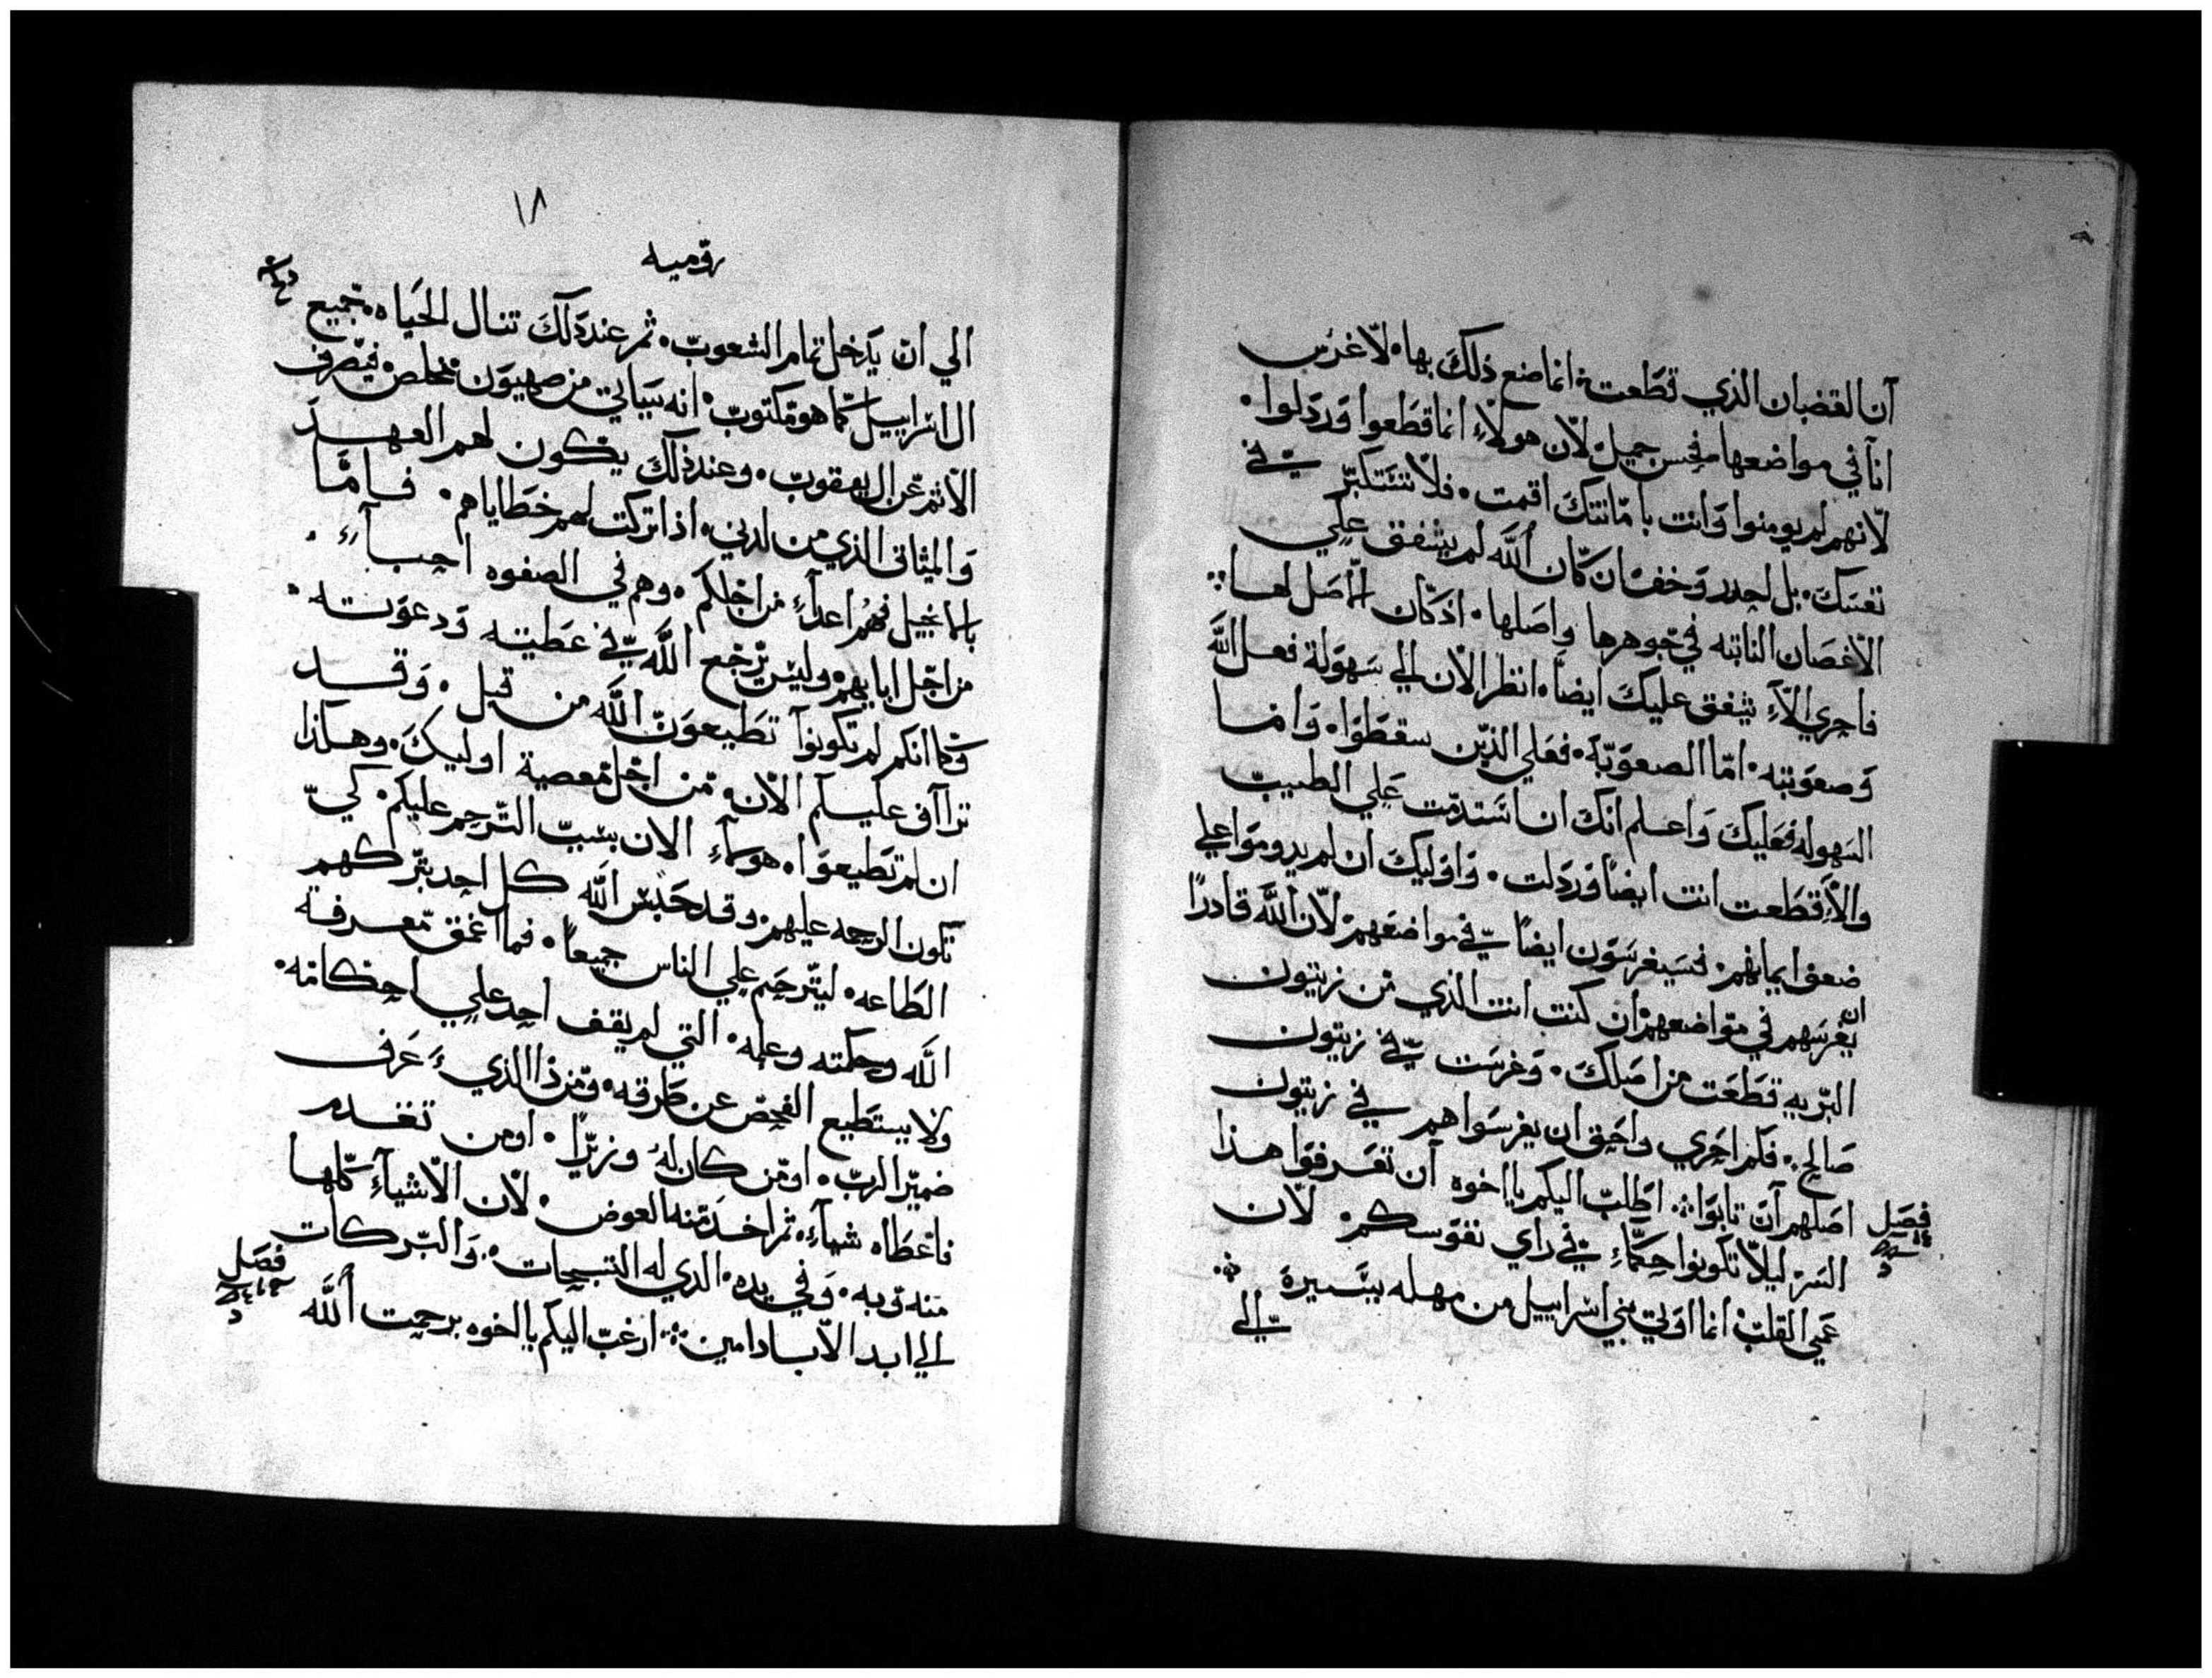 آن القضبان الذي قطعت انما صنع ذلك بها لاغرس
انا في مواضعها فحسن جميل لان هولاء انما قطعوا وردلوا
لانهم لم يومنوا وانت بامانتك اقمت فلا تستكبر في
نفسك بل احدر وخف ان كان الله لم يشفق علي
الاغصان النابته في جوهرها واصلها اذ كان الاصل لها
فاحري الاء يشفق عليك ايضا انظر الان الي سهولة فعل الله
وصعوبته اما الصعوبة فعلي الذين سقطوا وانما
السهوله فعليك واعلم انك ان استدمت علي الطيب
والا قطعت انت ايضا وردلت واوليك ان لم يدوموا علي
ضعف ايمانهم فسيغرسون ايضا في مواضعهم لان الله قادرا
ان يغرسهم في مواضعهم ان كنت انت الذي من زيتون
البريه قطعت من اصلك وغرست في زيتون
صالح فكم احري واحق ان يغرسوا هم في زيتون
اصلهم آن تابوا اطلب اليكم يااخوه آن تعرفوا هذا
فصل
السر ليلا تكونوا حكماء في راي نفوسكم لان
عمي القلب انما اوتي بني اسراييل من مهله يسيرة
الي
١٨
روميه
الي ان يدخل تمام الشعوب ثم عند ذلك تنال الحياه جميع
ال اسراييل كما هو مكتوب انه سياتي من صهيون مخلص فيصرف
الاثم عن ال يعقوب وعند ذلك يكون لهم العهد
والميثاق الذي من لدني اذا تركت لهم خطاياهم فاما
بالانجيل فهم اعداء من اجلكم وهم في الصفوه احباء
من اجل ابايهم وليس يرجع الله في عطيته ودعوته
وكما انكم لم تكونوا تطيعون الله من قبل وقد
تراآف عليكم الان من اجل معصية اوليك وهكذا
ان لم تطيعوا هولاء الان بسبب الترحم عليكم كي
تكون الرحمه عليهم وقد حبس الله كل احد بتركهم
الطاعه ليترحم علي الناس جميعا فما اعمق معرفة
الله وحكمته وعلمه التي لم يقف احد علي احكامه
ولا يستطيع الفحص عن طرقه ومن ذا الذي عرف
ضمير الرب او من كان له وزيرا او من تقدم
فاعطاه شيا ثم اخد منه العوض لان الاشياء كلها
منه وبه وفي يده الدي له التسبحات والبركات
الي ابد الاباد امين ارغب اليكم يا اخوه برحمت الله
فصل